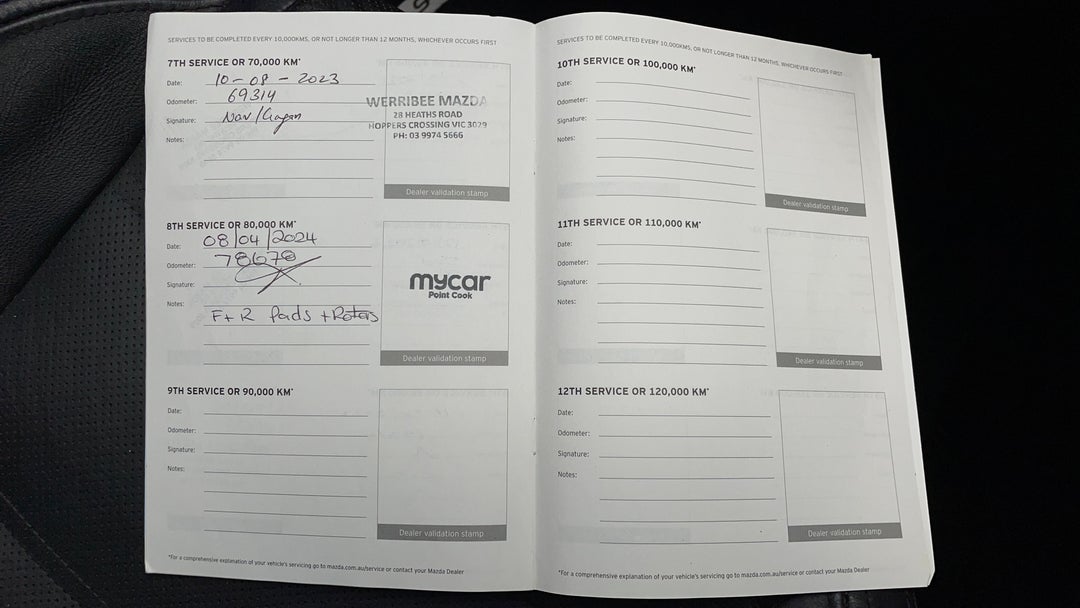 SERVICES TO BE COMPLETED EVERY 10,000KMS, OR NOT LONGER THAN 12 MONTHS, WHICHEVER OCCURS FIRST
7TH SERVICE OR 70,000 KM*
Date: 10-08-2023
Odometer: 69314
Signature: Nav/Gagan
Notes:
WERRIBEE MAZDA
28 HEATHS ROAD
HOPPERS CROSSING VIC 3029
PH: 03 9974 5666
Dealer validation stamp
8TH SERVICE OR 80,000 KM*
Date: 08/04/2024
Odometer: 78678
Signature:
Notes:
F+R Pads + Rotors
mycar
Point Cook
Dealer validation stamp
9TH SERVICE OR 90,000 KM*
Date:
Odometer:
Signature:
Notes:
Dealer validation stamp
*For a comprehensive explanation of your vehicle's servicing go to mazda.com.au/service or contact your Mazda Dealer
SERVICES TO BE COMPLETED EVERY 10,000KMS, OR NOT LONGER THAN 12 MONTHS, WHICHEVER OCCURS FIRST
10TH SERVICE OR 100,000 KM*
Date:
Odometer:
Signature:
Notes:
Dealer validation stamp
11TH SERVICE OR 110,000 KM*
Date:
Odometer:
Signature:
Notes:
Dealer validation stamp
12TH SERVICE OR 120,000 KM*
Date:
Odometer:
Signature:
Notes:
Dealer validation stamp
*For a comprehensive explanation of your vehicle's servicing go to mazda.com.au/service or contact your Mazda Dealer